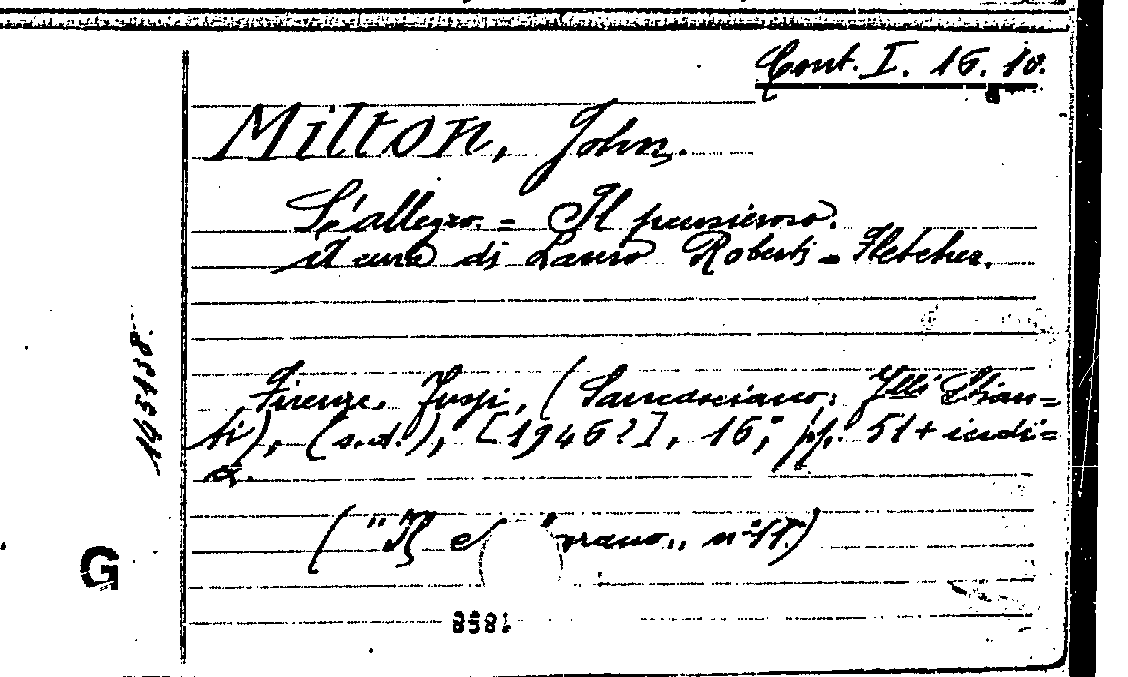 Cont. I. 16. 10.
Milton, John.
L'allegro. = Il pensieroso.
A cura di Lauro Roberti = Fletcher.
Firenze, Fussi, (Sancasciano: F.lli Stian=
ti), (s.d.), [1946?], 16°, pp. 51 + indi=
ce.
("Il no", n° 11.)
145438.
G
8581